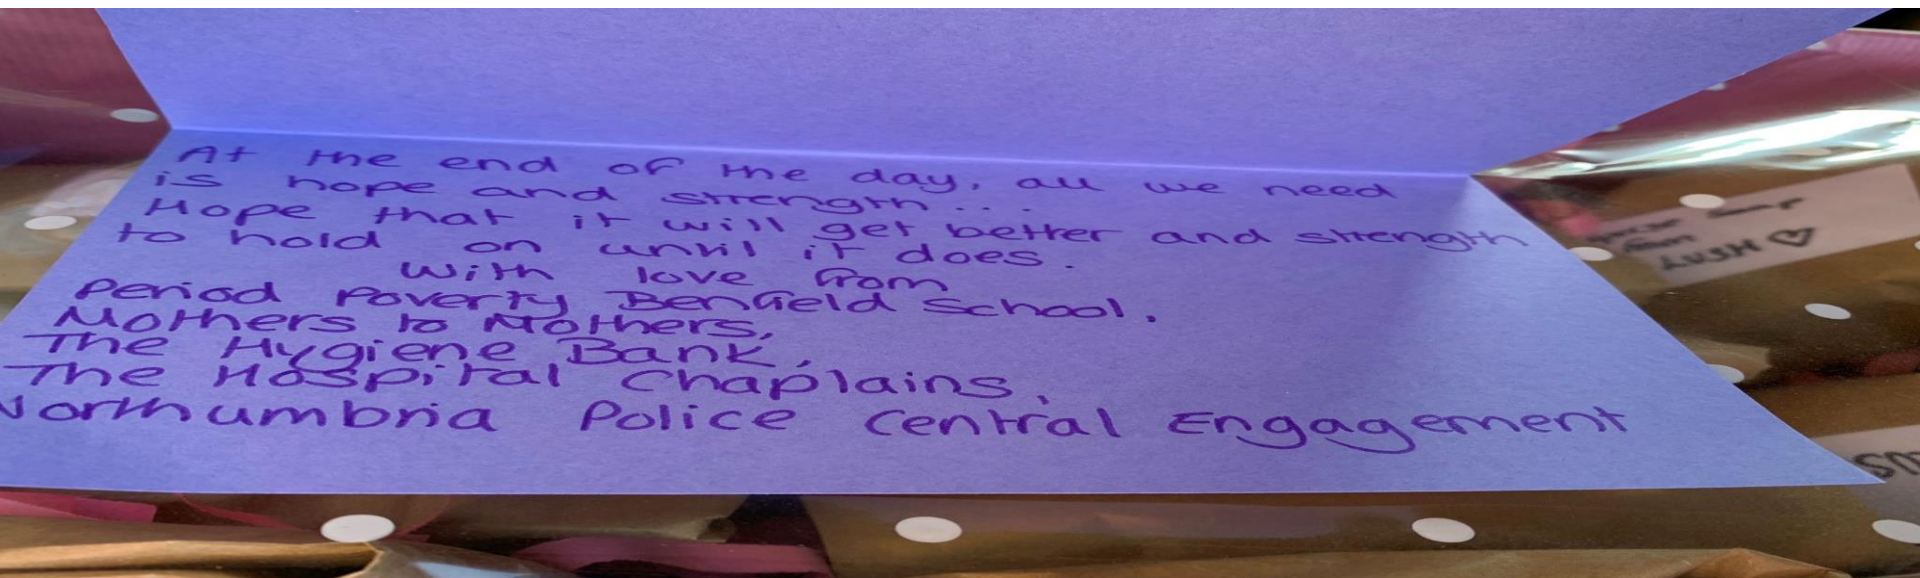 At the end of the day, all we need
is hope and strength...
Hope that it will get better and strength
to hold on until it does.
With love from
Period Poverty Benfield School.
Mothers to Mothers,
The Hygiene Bank,
The Hospital Chaplains,
Northumbria Police Central Engagement
from
LUSH ♡